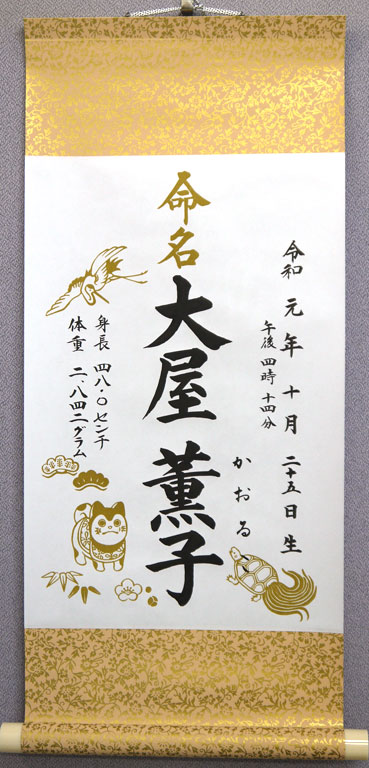 令和 元年 十月 二十五日 生
午後 四時 十四分
命名
大屋 薫子
かおるこ
身長 四八.〇センチ
体重 二、八四二グラム